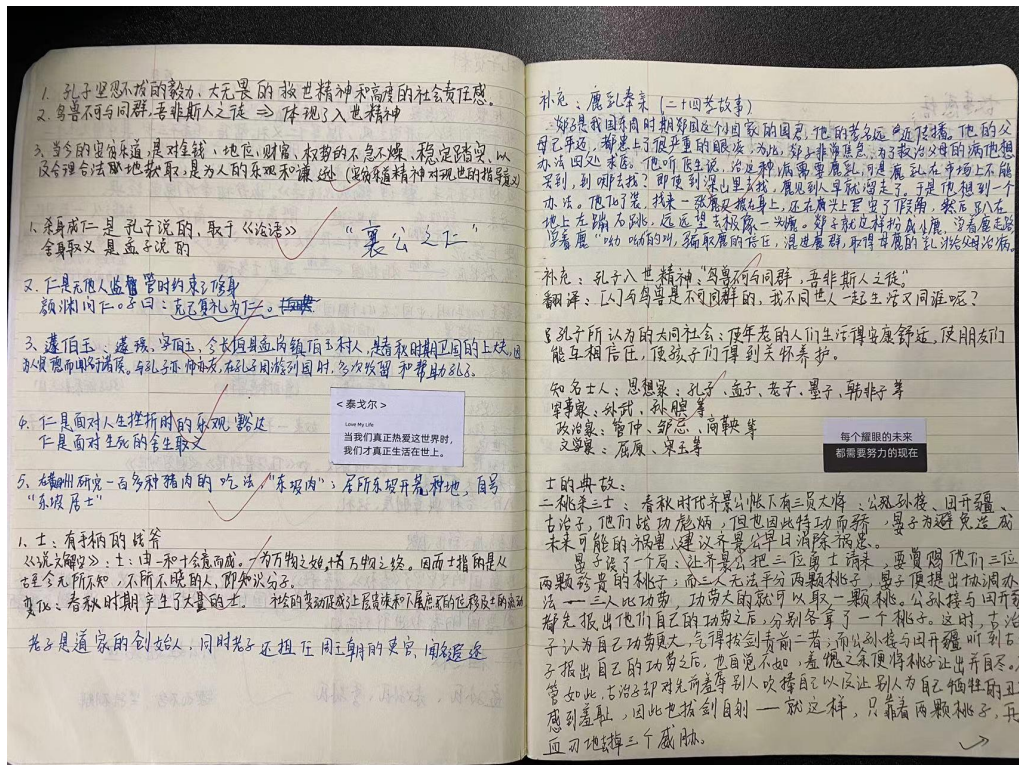 1. 孔子坚忍不拔的毅力、大无畏的救世精神和高度的社会责任感。
2. 鸟兽不可与同群,吾非斯人之徒 ⇒ 体现了入世精神
3. 当今的安贫乐道,是对金钱、地位、财富、权势的不急不燥、稳定踏实、以
及合理合法地获取,是为人的乐观和谦逊(安贫乐道精神对现世的指导意义)
1. 杀身成仁是孔子说的,取于《论语》
舍身取义是孟子说的
“襄公之仁”
2. 仁是无他人监管时约束了修身
颜渊问仁。子曰:克己复礼为仁。
3、蘧伯玉:蘧瑗,字伯玉,今长垣县孟岗镇伯玉村人,是春秋时期卫国的上大夫,因
为贤德而闻名诸侯。与孔子亦师亦友,在孔子周游列国时,多次收留和帮助孔子。
4. 仁是面对人生挫折时的乐观、豁达
仁是面对生死的舍生取义
<泰戈尔>
Love My Life
当我们真正热爱这世界时,
我们才真正生活在世上。
5. 在黄州研究一百多种猪肉的吃法,“东坡肉”;居所东坡开荒种地,自号
“东坡居士”
1. 士:有手柄的战斧
《说文解字》:士:由一和十会意而成。一为万物之始,十为万物之终。因而士指的是从
古至今无所不知、不所不晓的人,即知识分子。
变化:春秋时期产生了大量的士。社会的变动促成上层贵族和下层庶民的位移及士的流动
老子是道家的创始人,同时老子还担任周王朝的吏官,闻名遐迩
补充:鹿乳奉亲(二十四孝故事)
郯子是我国东周时期郯国这个小国家的国君,他的孝名远近传播。他的父
母已年迈,都患上了很严重的眼疾,为此,郯子非常焦急,为了救治父母的病他想
办法四处求医。他听医生说,治这种病需要鹿乳,可是鹿乳在市场上不能
买到,到哪去找?即使到深山里去找,鹿见到人早就溜走了。于是他想到一个
办法。他化了装,找来一张鹿皮披在身上,还在肩头上罩出了假角,然后趴在
地上左蹦右跳,远远望去极像一头鹿。郯子就这样扮成小鹿,学着鹿走路
学着鹿“呦呦”的叫,骗取鹿的信任,混进鹿群,取得母鹿的乳汁给父母治病。
补充:孔子入世精神:“鸟兽不可与同群,吾非斯人之徒。”
翻译:人们与鸟兽是不可同群的,我不同世人一起生活又同谁呢?
孔子所认为的大同社会:使年老的人们生活得安康舒适,使朋友们
能互相信任,使孩子们得到关怀养护。
知名士人:思想家:孔子、孟子、老子、墨子、韩非子等
军事家:孙武、孙膑等
政治家:管仲、邹忌、商鞅等
文学家:屈原、宋玉等
每个耀眼的未来
都需要努力的现在
士的典故:
二桃杀三士:春秋时代齐景公帐下有三员大将:公孙接、田开疆、
古冶子,他们战功彪炳,但也因此恃功而骄,晏子为避免造成
未来可能的祸患,建议齐景公早日消除祸患。
晏子设了一个局:让齐景公把三位勇士请来,要赏赐他们三位
两颗珍贵的桃子;而三人无法平分两颗桃子,晏子便提出协调办
法——三人比功劳,功劳大的就可以取一颗桃。公孙接与田开疆
都先报出他们自己的功劳之后,分别各拿了一个桃子。这时,古冶
子认为自己功劳更大,气得拔剑责前二者;而公孙接与田开疆听到古
子报出自己的功劳之后,也自觉不如,羞愧之余便将桃子让出并自尽。
管如此,古冶子却对先前羞辱别人吹捧自己以及让别人为自己牺牲的丑
感到羞耻,因此也拔剑自刎——就这样,只靠着两颗桃子,兵
血刃地去掉三个威胁。